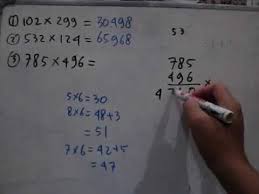 ① 102 × 299 = 30498
② 532 × 124 = 65968
③ 785 × 496 =
53
785
496 ×
47
5x6 = 30
8x6 = 48+3
= 51
7x6 = 42+5
= 47